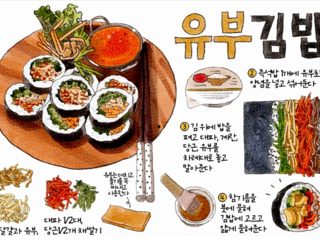 유부김밥
② 즉석밥 1개에 유부초
양념을 넣고 섞어준다
③ 김 위에 밥을
펴고 대파, 계란,
당근 유부를
차례대로 놓고
말아준다
④ 참기름을
붓에 묻혀
김밥에 고르고
얇게 묻혀준다
달걀과 유부,
대파 1/2대,
당근 1/2개 채썰기